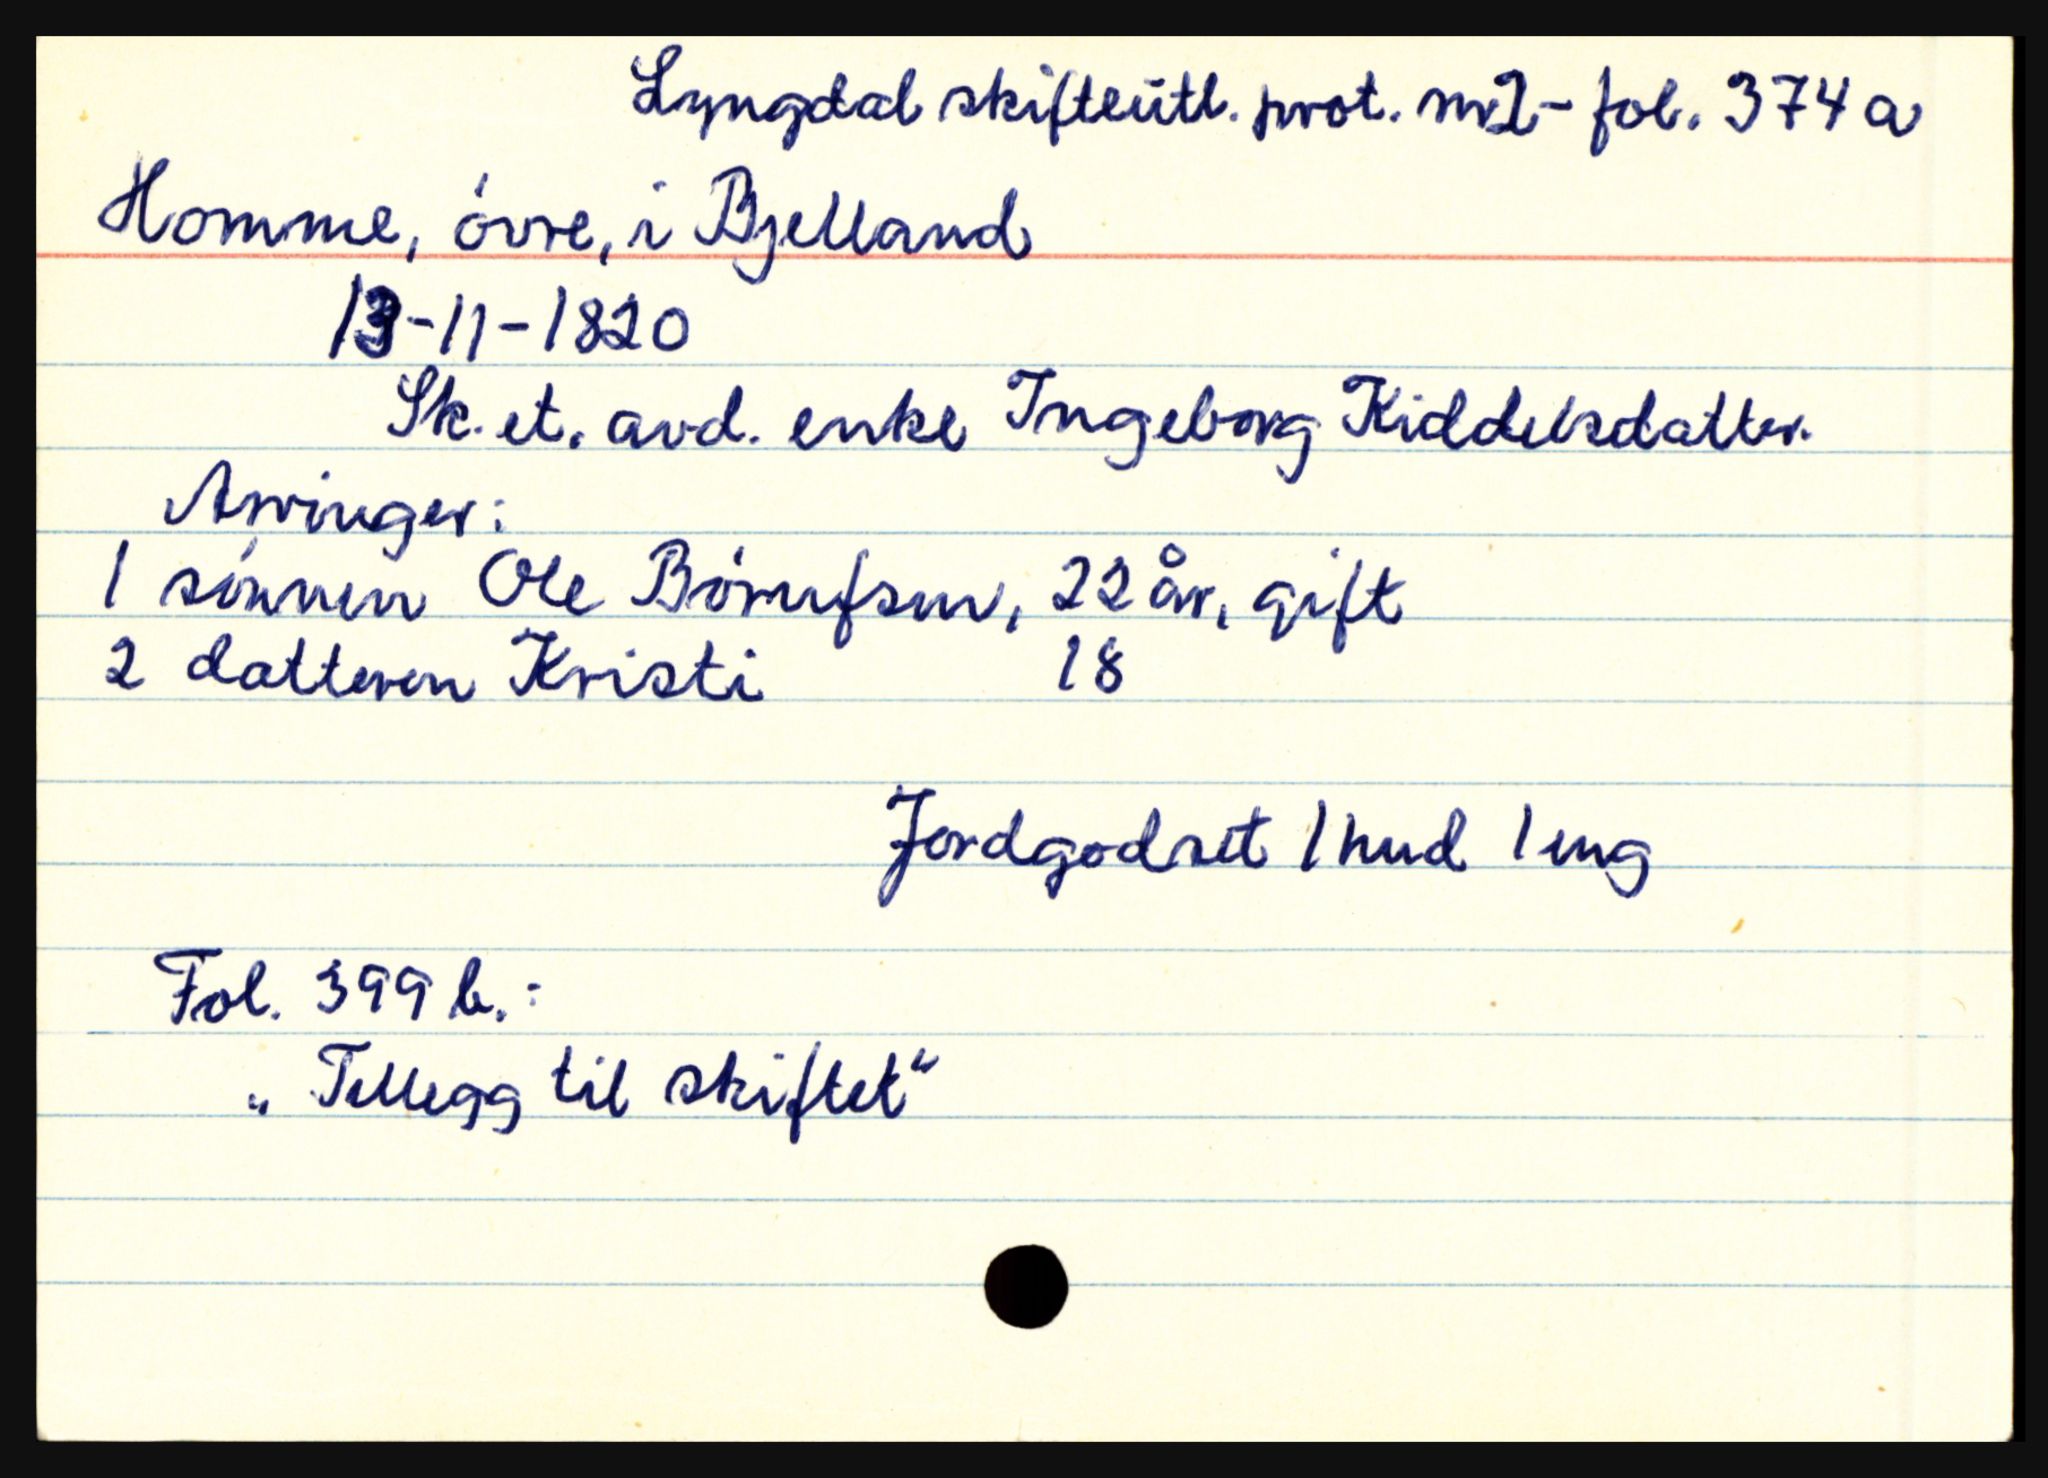 Lyngdal skifteutl. prot. nr 2 - fol. 374 a
Homme, övre, i Bjelland
13-11-1820
Sk. et. avd. enke Ingeborg Kiddelsdatter.
Arvinger:
1 sönnen Ole Börufsen, 22 år, gift
2 datteren Kristi 18
Jordgodset 1 hud 1 eng
Fol. 399 b.:
„Tillegg til skiftet“